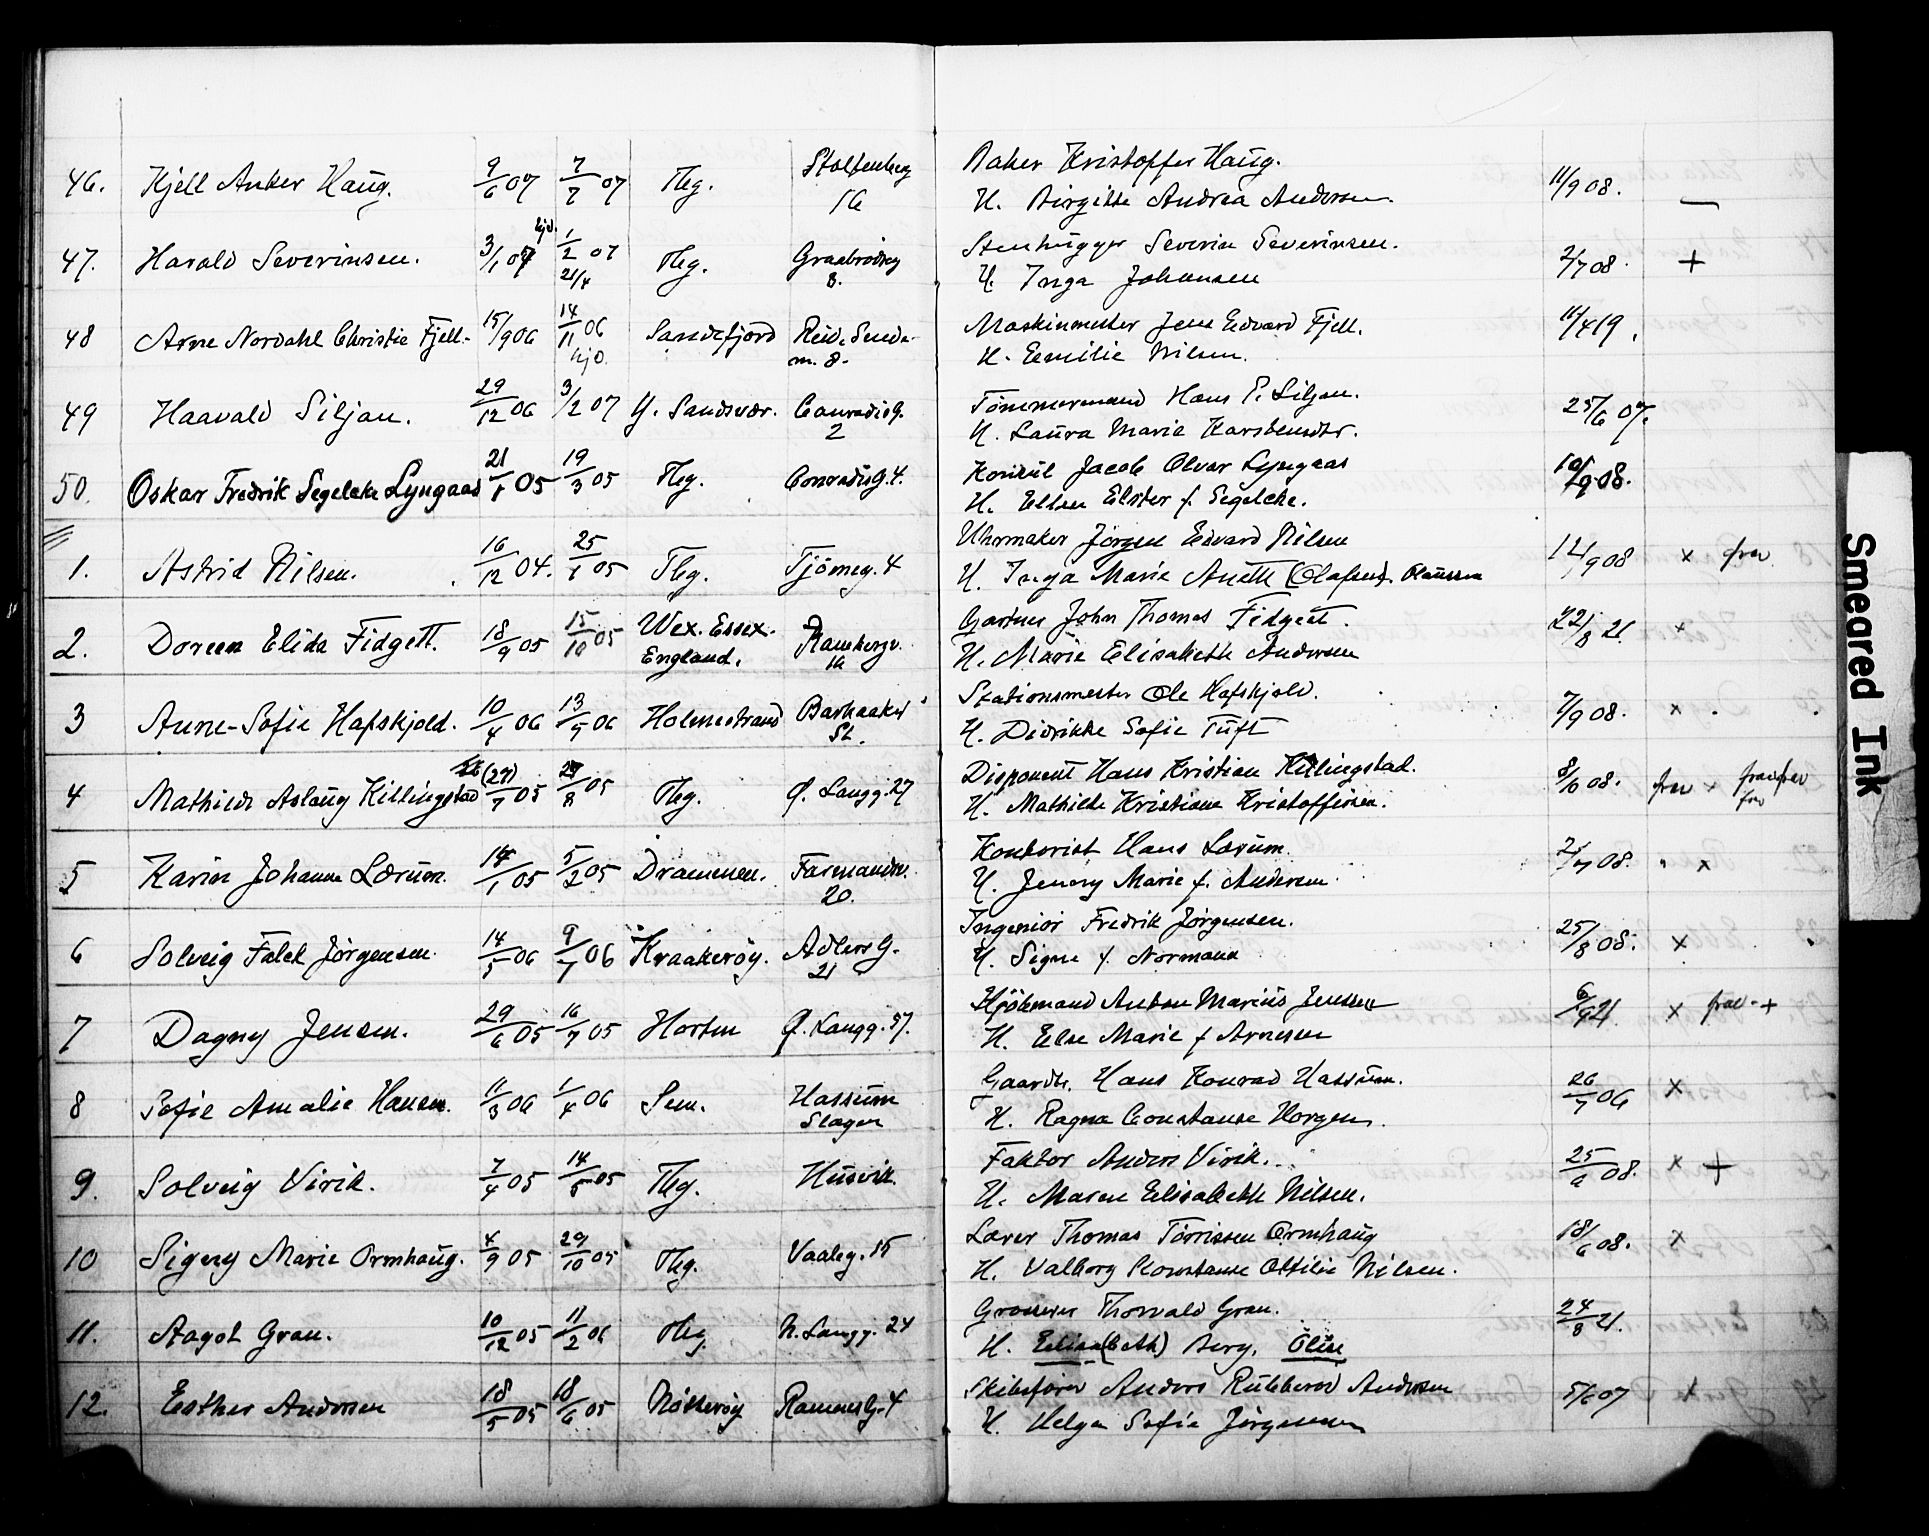 46. Kjell Anker Haug. 9/6 07 7/7 07 Tbg. Stoltenberg 16 Baker Kristoffer Haug. 11/9 08. —
H. Birgitte Andrea Andersen.
47. Harald Severinsen. 3/1 07 hjd. 1/2 07 21/4 Tbg. Graabrødreg 8. Stenhugger Severin Severinsen. 2/7 08. +
H. Inga Johansen
48 Arne Nordahl Christie Fjell. 15/9 06 14/11 06 hjd. Sandefjord m. 8. Maskinmester Jens Edvard Fjell. 11/4 19.
H. Emilie Nilsen.
49 Haavald Siljan. 29/12 06 3/2 07 Y. Sandsvær. Conradis G. 2 Tömmermand Hans P. Siljan. 25/6 07.
H. Laura Marie Karstensdtr.
50. Oskar Fredrik Segelcke Lyngaas 21/1 05 19/3 05 Tbg. Conradis G. 4. Konsul Jacob Olvar Lyngaas 10/9 08.
H. Ellen Elster f. Segelcke.
1. Astrid Nilsen. 16/12 04. 25/1 05 Tbg. Tjömeg. 4 Uhrmaker Jörgen Edvard Nilsen 12/9 08 x frav
H. Inga Marie Anette (Olafsen). Olaussen
2. Doreen Elida Fidgett. 18/9 05 15/10 05 Wex. Essex. England. Rambergv. Gartner John Thomas Fidgett. 22/8 21 x
H. Marie Elisabeth Andersen
3 Anne-Sofie Hafskjold. 10/4 06 13/5 06 Holmestrand Barkaaker St. Stationsmester Ole Hafskjold. 7/9 08. x
H. Didrikke Sofie Tuft
4 Mathilde Aslaug Killingstad (27)/7 05 27/8 05 Tbg. Ø. Langg. 27 Disponent Hans Kristian Killingstad. 8/6 08. frav x frav frav frav
H. Mathilde Kristiane Kristoffersen.
5 Karin Johanne Lærum. 14/1 05 5/2 05 Drammen. Farmandsv. 20. Kontorist Hans Lærum. 2/7 08. x
H. Jenny Marie f. Andersen
6 Solveig Falck Jørgensen. 14/5 06 9/7 06 Kraakerøy. Adlers G. 21 Ingeniør Fredrik Jørgensen. 25/8 08. x
H. Signe f. Normann
7 Dagny Jensen. 29/6 05 16/7 05 Horten Ø. Langg. 57. Kjöbmand Anton Marius Jensen 6/9 21. x frav +
H. Else Marie f Arnesen
8 Sofie Amalie Hansen. 11/3 06 1/4 06 Sem. Hassum Slagen Gaardbr. Hans Konrad Hassum. 26/7 06 x
H. Ragna Constanse Horgen.
9. Solveig Virik. 7/4 05 14/5 05 Tbg. Husvik. Faktor Anders Virik. 25/6 08. x +
H. Maren Elisabeth Nilsen.
10 Signy Marie Ormhaug. 4/9 05 29/10 05 Tbg. Vaaleg. 15 Lærer Thomas Törrissen Ormhaug 18/6 08. x
H. Valborg Konstanse Ottilie Nilsen.
11. Aagot Gran. 10/12 05 11/2 06 Tbg. N. Langg. 24 Grosserer Thorvald Gran. 24/8 21.
H. Elisa(beth) Berg. Olise
12. Esther Andersen 18/5 05 18/6 05 Nötterøy Ramms G. 4 Skibsfører Anders Rubberød Andersen 5/6 07 x
H. Helga Sofie Jørgensen
Smeared Ink